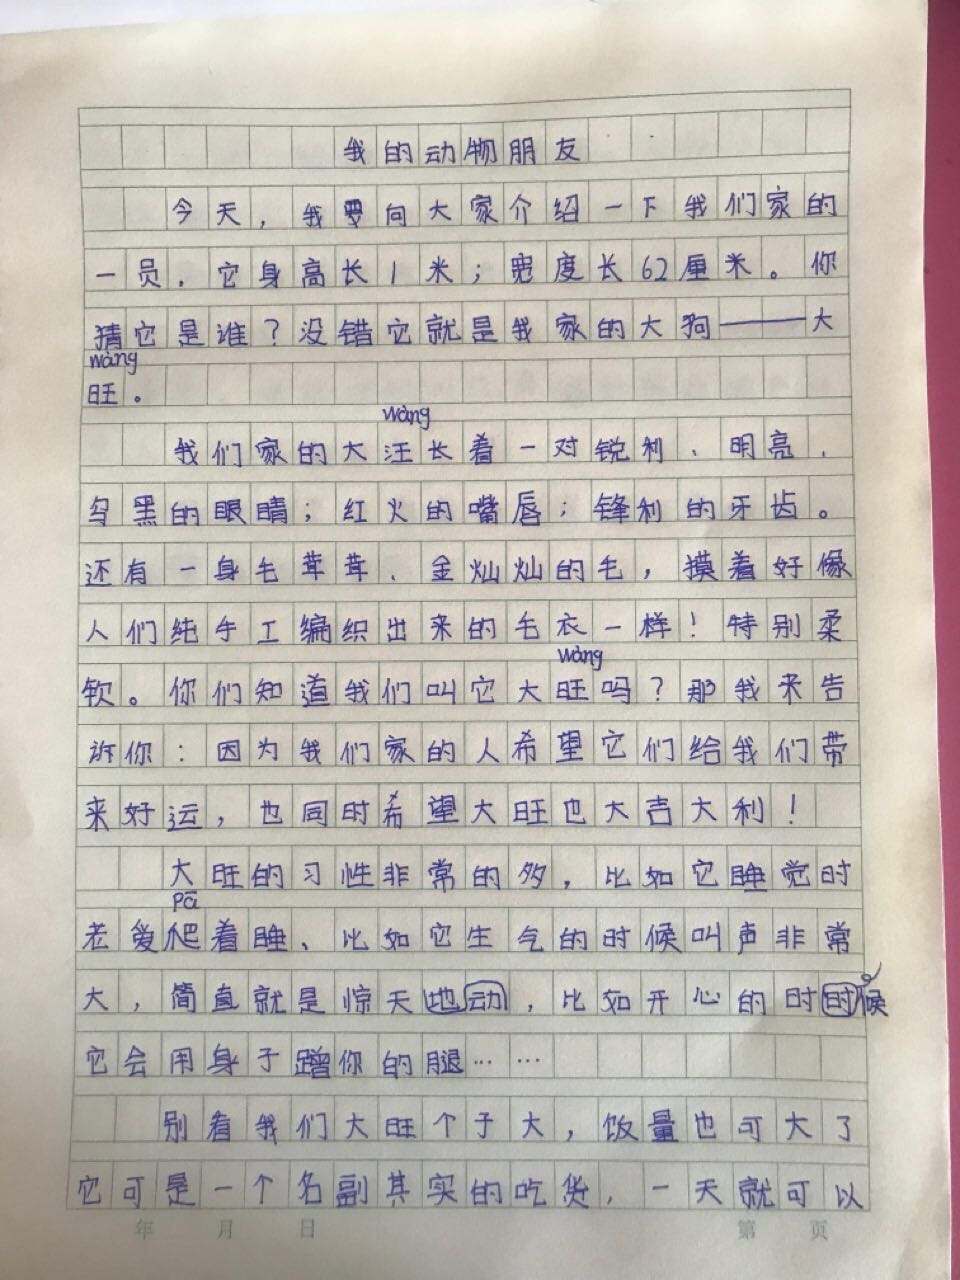 我的动物朋友
今天，我要向大家介绍一下我们家的
一员．它身高长1米；宽度长62厘米。你
猜它是谁？没错它就是我家的大狗——大
wàng
旺。
wàng
我们家的大汪长着一对锐利、明亮、
乌黑的眼睛；红火的嘴唇；锋利的牙齿。
还有一身毛茸茸、金灿灿的毛，摸着好像
人们纯手工编织出来的毛衣一样！特别柔
wàng
软。你们知道我们叫它大旺吗？那我来告
诉你：因为我们家的人希望它们给我们带
来好运，也同时希望大旺也大吉大利！
大旺的习性非常的多，比如它睡觉时
pā
老爱爬着睡、比如它生气的时候叫声非常
大，简直就是惊天地动，比如开心的时时候
它会用身子蹭你的腿……
别看我们大旺个子大，饭量也可大了
它可是一个名副其实的吃货，一天就可以
年 月 日 第 页